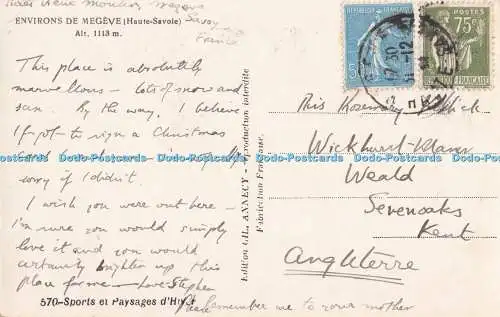 Vieux Moulin, Megève
Savoy
France
ENVIRONS DE MEGÈVE (Haute-Savoie)
Alt. 1113 m.
This place is absolutely
marvellous - lots of snow and
sun. By the way, I believe
I forgot to sign a Christmas
sorry if I didn't.
I wish you were out here -
I'm sure you would simply
love it and you would
certainly brighten up this
place for me - Love Stephen
Please remember me to your mother
570-Sports et Paysages d'Hiver
Edition GIL, ANNECY - Reproduction interdite
Fabrication Française
75c
Rosemary
Wickhurst
Weald
Sevenoaks
Kent
Angleterre
Dado-Postcards.com Dado-Postcards.com Dado-Postcards.com Dado-Postcards.com